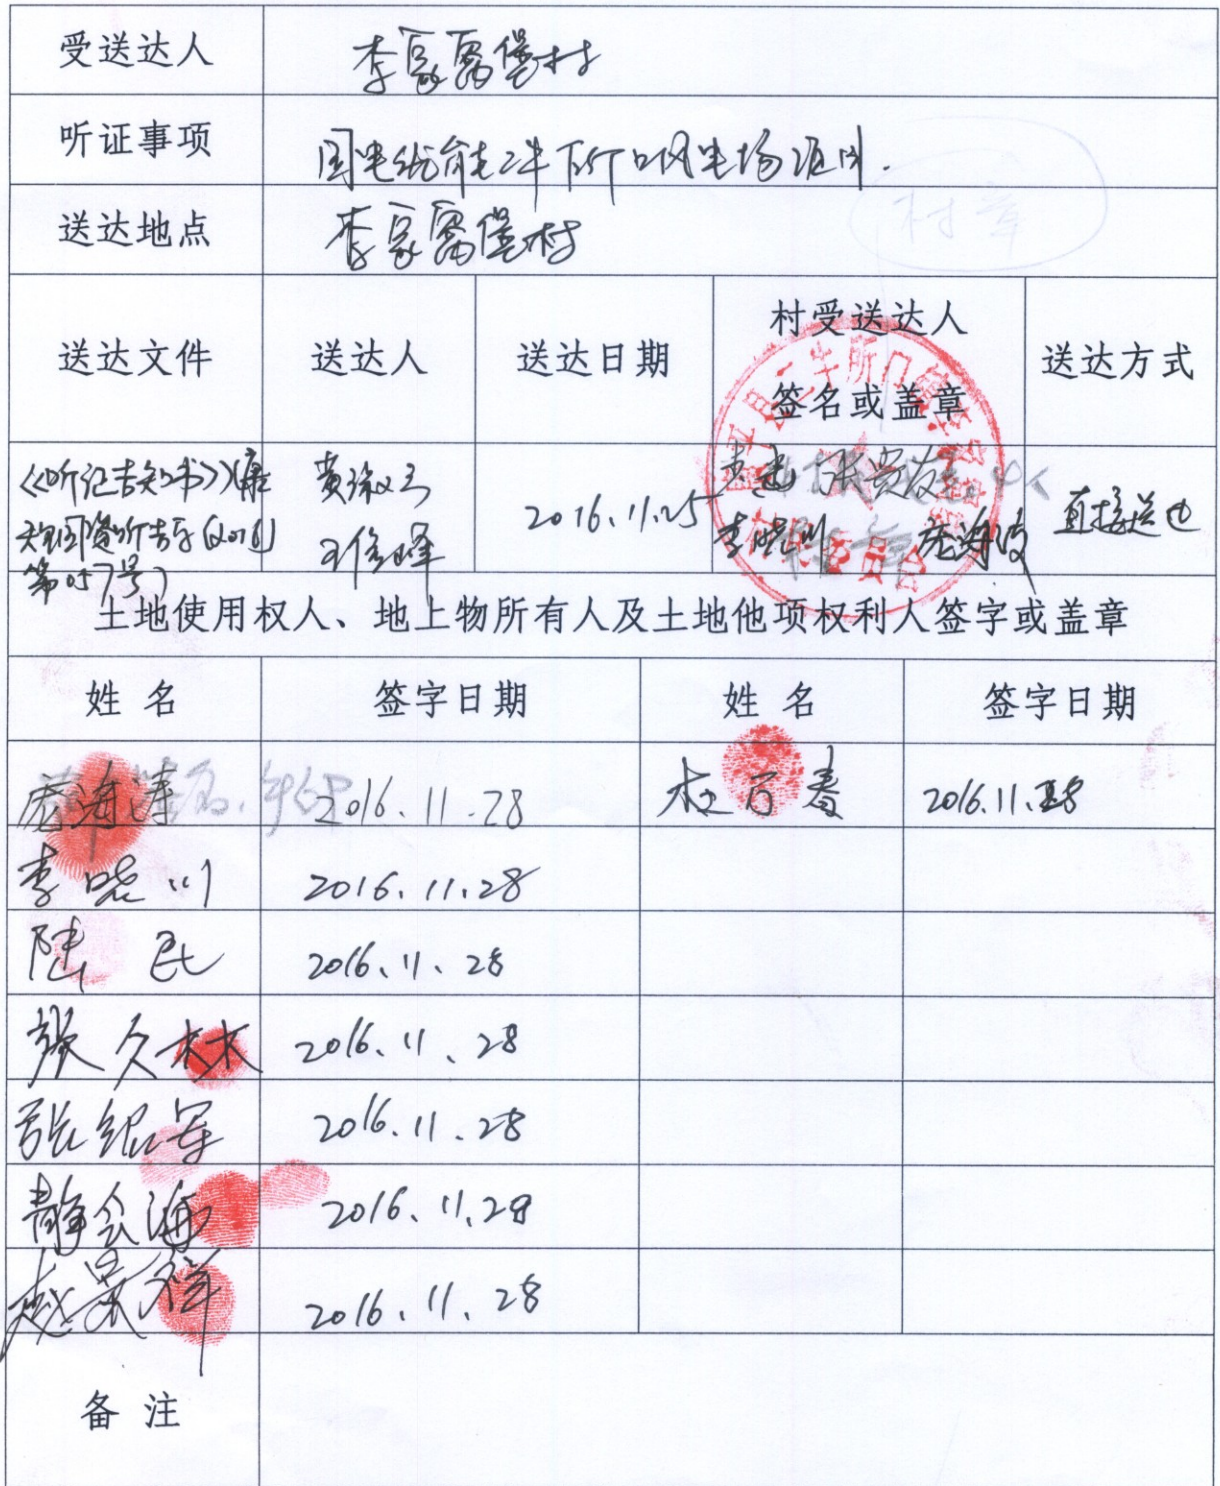 受送达人 李家窝堡村
听证事项 国电优能二牛所口风电场项目.
送达地点 李家窝堡村
村章
送达文件 送达人 送达日期 村受送达人 签名或盖章 送达方式
《听证告知书》(康
国资听告字(2016)
第057号) 2016.11.25 李晓川 直接送达
土地使用权人、地上物所有人及土地他项权利人签字或盖章
姓名 签字日期 姓名 签字日期
庞海涛 2016.11.28 杜万春 2016.11.28
李晓川 2016.11.28
陆民 2016.11.28
张久林 2016.11.28
张绍军 2016.11.28
静会海 2016.11.28
赵景祥 2016.11.28
备注